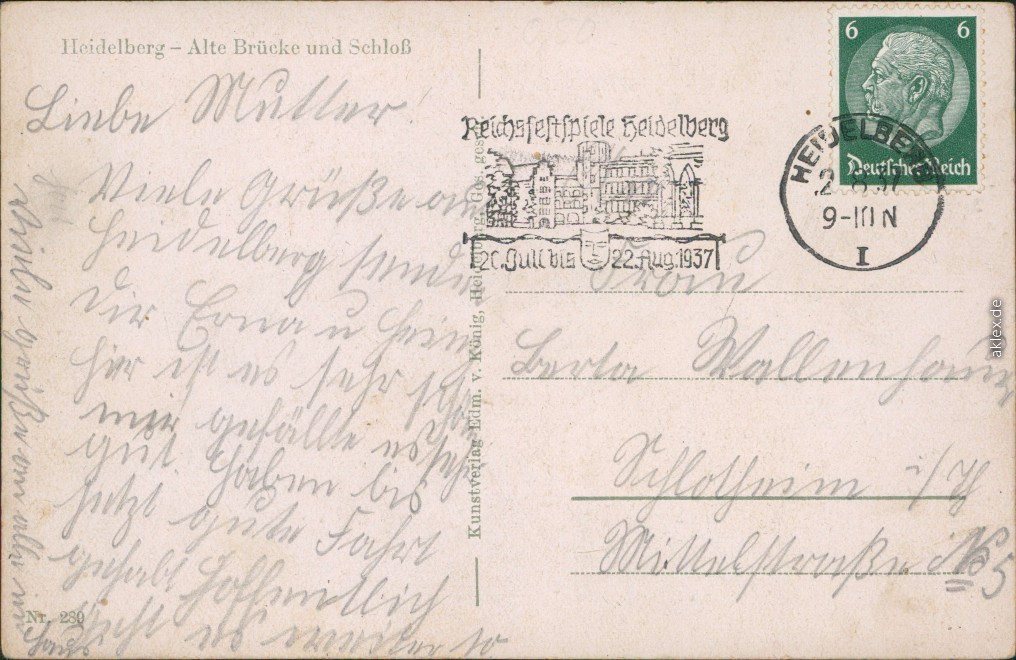 Heidelberg – Alte Brücke und Schloß
Liebe Mutter
Viele Grüße aus
Heidelberg sendet
dir Erna u Hein
hier ist es sehr schön
mir gefällt es sehr
gut haben bis
jetzt gute Fahrt
gehabt Hoffentlich
geht es weiter so
Viele Grüße an alle im
Haus
Nr. 280
Kunstverlag Edm. v. König, Heidelberg. Ges. gesch.
Reichsfestspiele Heidelberg
20. Juli bis 22. Aug. 1937
6 6
Deutsches Reich
HEIDELBERG
2.8.37
9-10 N
I
Frau
Berta Wallenhauer
Schlotheim i/Th
Mittelstraße No 5
aklex.de